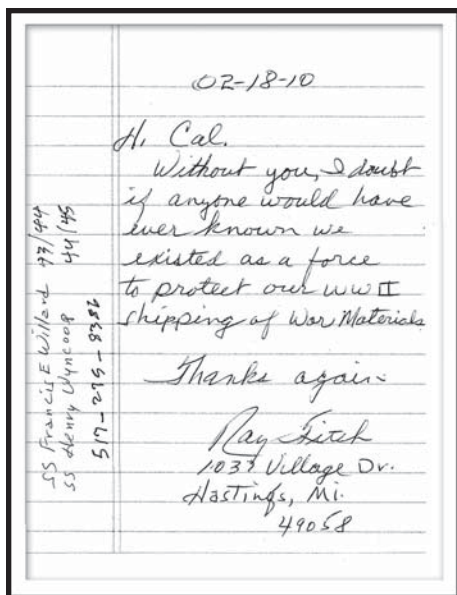 02-18-10
Hi Cal.
Without you, I doubt
if anyone would have
ever known we
existed as a force
to protect our WW II
shipping of War Materials
Thanks again-
Ray Fitch
1037 Village Dr.
Hastings, Mi.
49058
SS Francis E Willard 43/44
SS Henry Wyncoop 44/45
517-275-8382